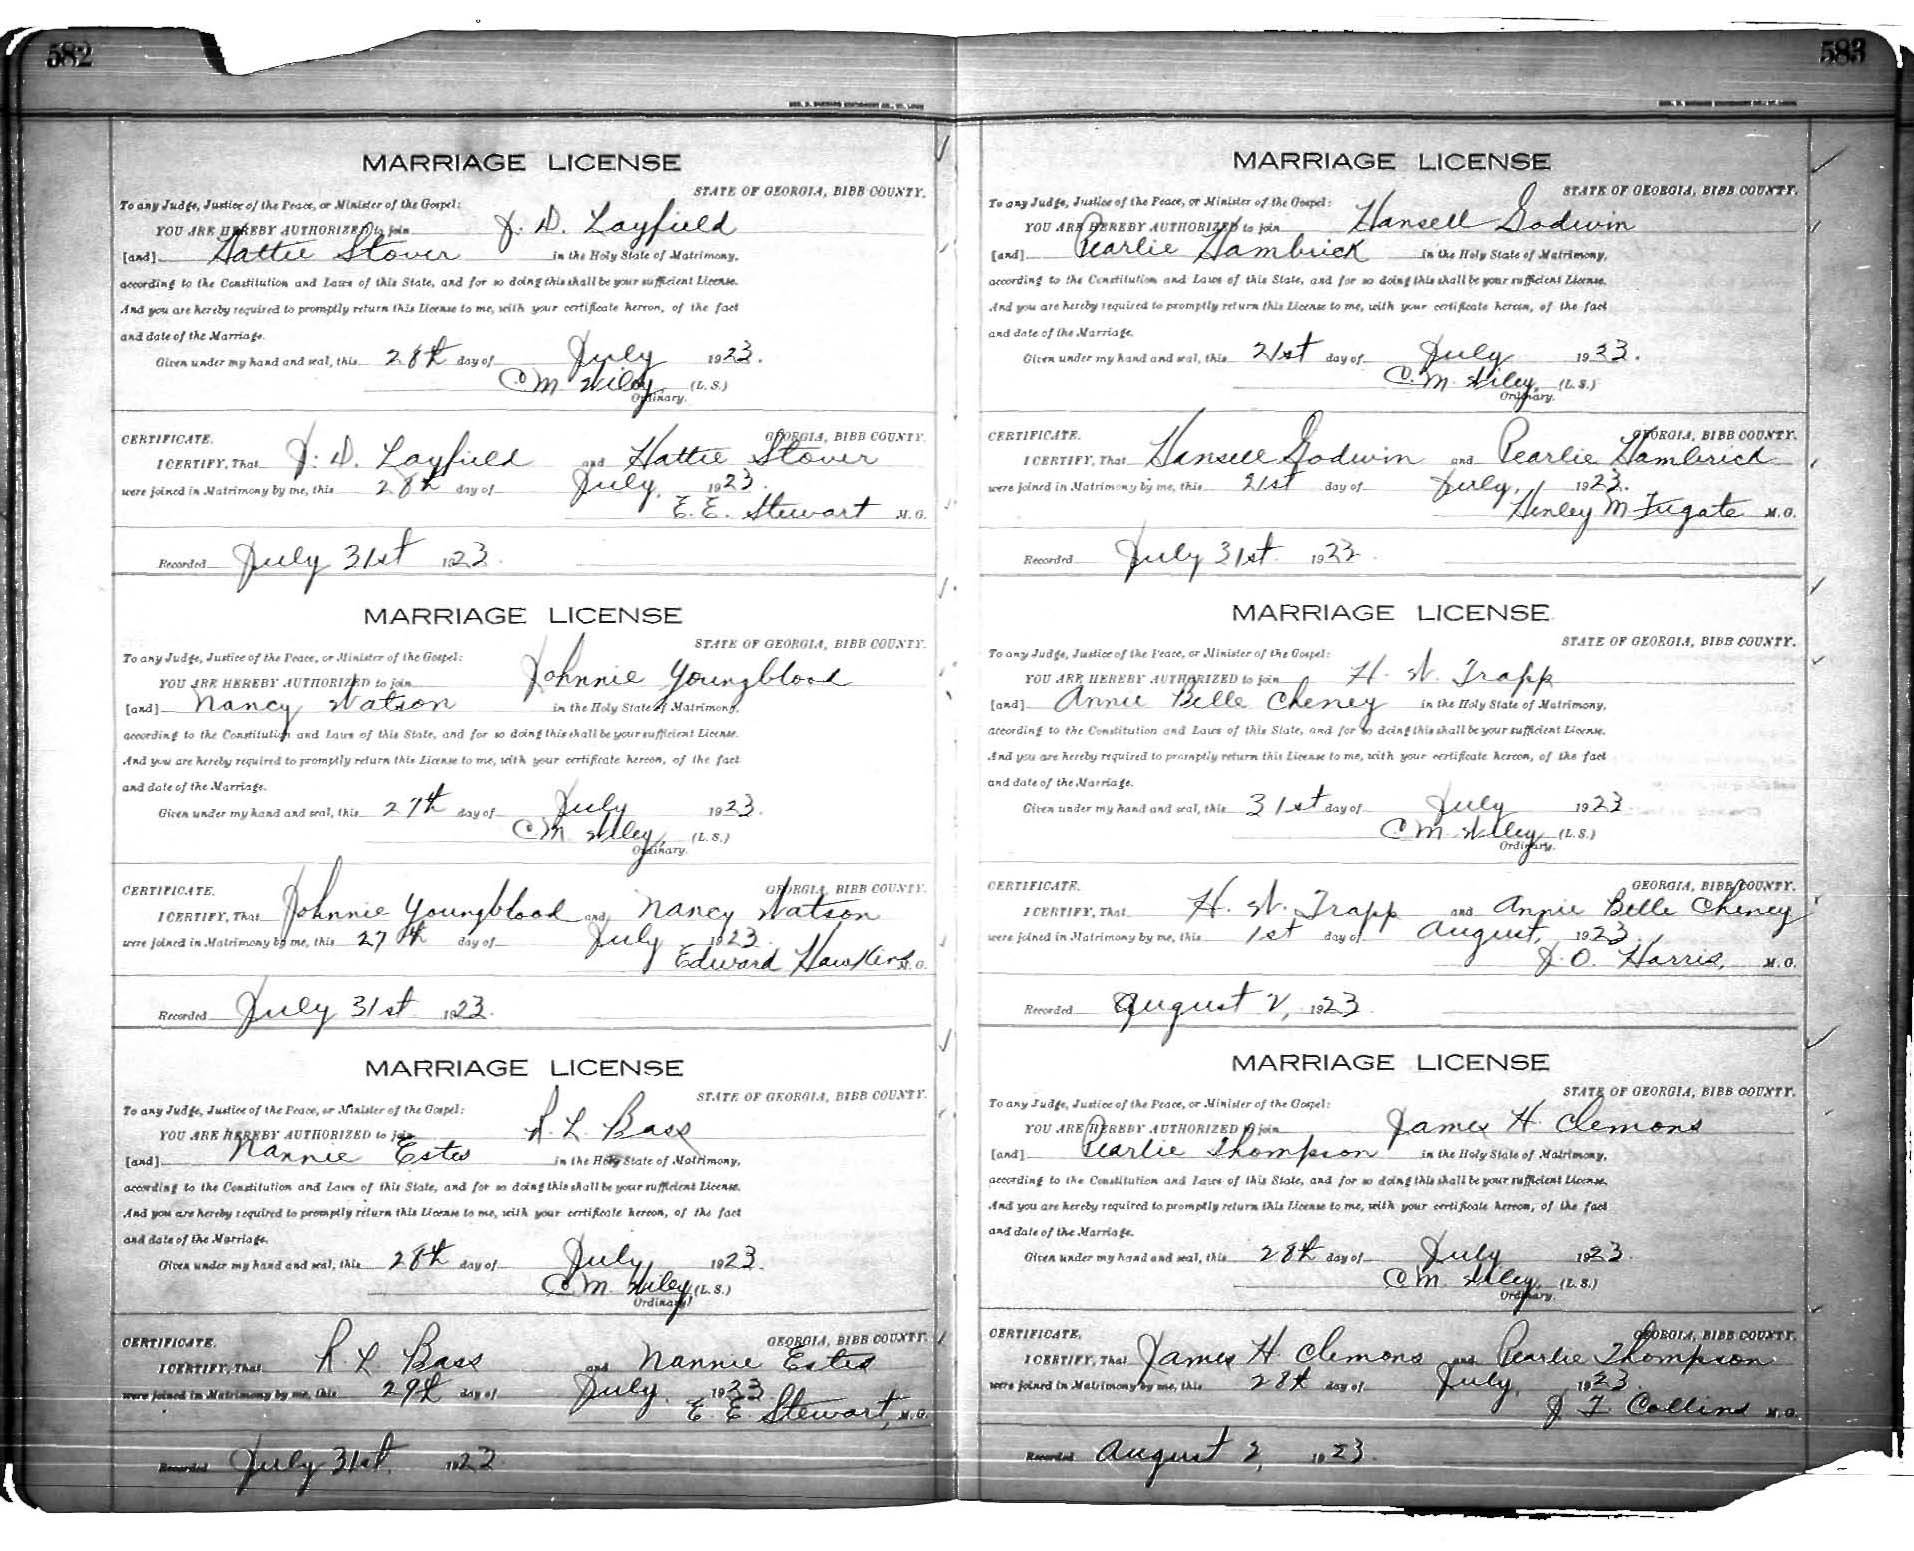 582
GEO. D. BARNARD STATIONERY CO., ST. LOUIS
MARRIAGE LICENSE
STATE OF GEORGIA, BIBB COUNTY.
To any Judge, Justice of the Peace, or Minister of the Gospel:
YOU ARE HEREBY AUTHORIZED to join J. D. Layfield
[and] Hattie Stover in the Holy State of Matrimony,
according to the Constitution and Laws of this State, and for so doing this shall be your sufficient License.
And you are hereby required to promptly return this License to me, with your certificate hereon, of the fact
and date of the Marriage.
Given under my hand and seal, this 28th day of July 1923.
C. M. Wiley, (L. S.)
Ordinary.
CERTIFICATE. GEORGIA, BIBB COUNTY.
I CERTIFY, That J. D. Layfield and Hattie Stover
were joined in Matrimony by me, this 28th day of July, 1923.
E. E. Stewart M. G.
Recorded July 31st 1923.
MARRIAGE LICENSE
STATE OF GEORGIA, BIBB COUNTY.
To any Judge, Justice of the Peace, or Minister of the Gospel:
YOU ARE HEREBY AUTHORIZED to join Johnnie Youngblood
[and] Nancy Watson in the Holy State of Matrimony,
according to the Constitution and Laws of this State, and for so doing this shall be your sufficient License.
And you are hereby required to promptly return this License to me, with your certificate hereon, of the fact
and date of the Marriage.
Given under my hand and seal, this 27th day of July 1923.
C. M. Wiley, (L. S.)
Ordinary.
CERTIFICATE. GEORGIA, BIBB COUNTY.
I CERTIFY, That Johnnie Youngblood and Nancy Watson
were joined in Matrimony by me, this 27th day of July 1923.
Edward Hawkins M. G.
Recorded July 31st 1923.
MARRIAGE LICENSE
STATE OF GEORGIA, BIBB COUNTY.
To any Judge, Justice of the Peace, or Minister of the Gospel:
YOU ARE HEREBY AUTHORIZED to join R. L. Bass
[and] Nannie Estes in the Holy State of Matrimony,
according to the Constitution and Laws of this State, and for so doing this shall be your sufficient License.
And you are hereby required to promptly return this License to me, with your certificate hereon, of the fact
and date of the Marriage.
Given under my hand and seal, this 28th day of July 1923.
C. M. Wiley (L. S.)
Ordinary.
CERTIFICATE. GEORGIA, BIBB COUNTY.
I CERTIFY, That R. L. Bass and Nannie Estes
were joined in Matrimony by me, this 29th day of July. 1923
E. E. Stewart, M. G.
Recorded July 31st, 1923
583
GEO. D. BARNARD STATIONERY CO., ST. LOUIS
MARRIAGE LICENSE
STATE OF GEORGIA, BIBB COUNTY.
To any Judge, Justice of the Peace, or Minister of the Gospel:
YOU ARE HEREBY AUTHORIZED to join Hansell Godwin
[and] Pearlie Hambrick in the Holy State of Matrimony,
according to the Constitution and Laws of this State, and for so doing this shall be your sufficient License.
And you are hereby required to promptly return this License to me, with your certificate hereon, of the fact
and date of the Marriage.
Given under my hand and seal, this 21st day of July 1923.
C. M. Wiley, (L. S.)
Ordinary.
CERTIFICATE. GEORGIA, BIBB COUNTY.
I CERTIFY, That Hansell Godwin and Pearlie Hambrick
were joined in Matrimony by me, this 21st day of July, 1923.
Henley M Fugate M. G.
Recorded July 31st 1923.
MARRIAGE LICENSE
STATE OF GEORGIA, BIBB COUNTY.
To any Judge, Justice of the Peace, or Minister of the Gospel:
YOU ARE HEREBY AUTHORIZED to join H. W. Trapp
[and] Annie Belle Cheney in the Holy State of Matrimony,
according to the Constitution and Laws of this State, and for so doing this shall be your sufficient License.
And you are hereby required to promptly return this License to me, with your certificate hereon, of the fact
and date of the Marriage.
Given under my hand and seal, this 31st day of July 1923
C. M. Wiley, (L. S.)
Ordinary.
CERTIFICATE. GEORGIA, BIBB COUNTY.
I CERTIFY, That H. W. Trapp and Annie Belle Cheney
were joined in Matrimony by me, this 1st day of August, 1923.
J. O. Harris, M. G.
Recorded August 2, 1923.
MARRIAGE LICENSE
STATE OF GEORGIA, BIBB COUNTY.
To any Judge, Justice of the Peace, or Minister of the Gospel:
YOU ARE HEREBY AUTHORIZED to join James H. Clemons
[and] Pearlie Thompson in the Holy State of Matrimony,
according to the Constitution and Laws of this State, and for so doing this shall be your sufficient License.
And you are hereby required to promptly return this License to me, with your certificate hereon, of the fact
and date of the Marriage.
Given under my hand and seal, this 28th day of July 1923.
C. M. Wiley, (L. S.)
Ordinary.
CERTIFICATE. GEORGIA, BIBB COUNTY.
I CERTIFY, That James H. Clemons and Pearlie Thompson
were joined in Matrimony by me, this 28th day of July, 1923.
J. T. Collins M. G.
Recorded August 2, 1923.